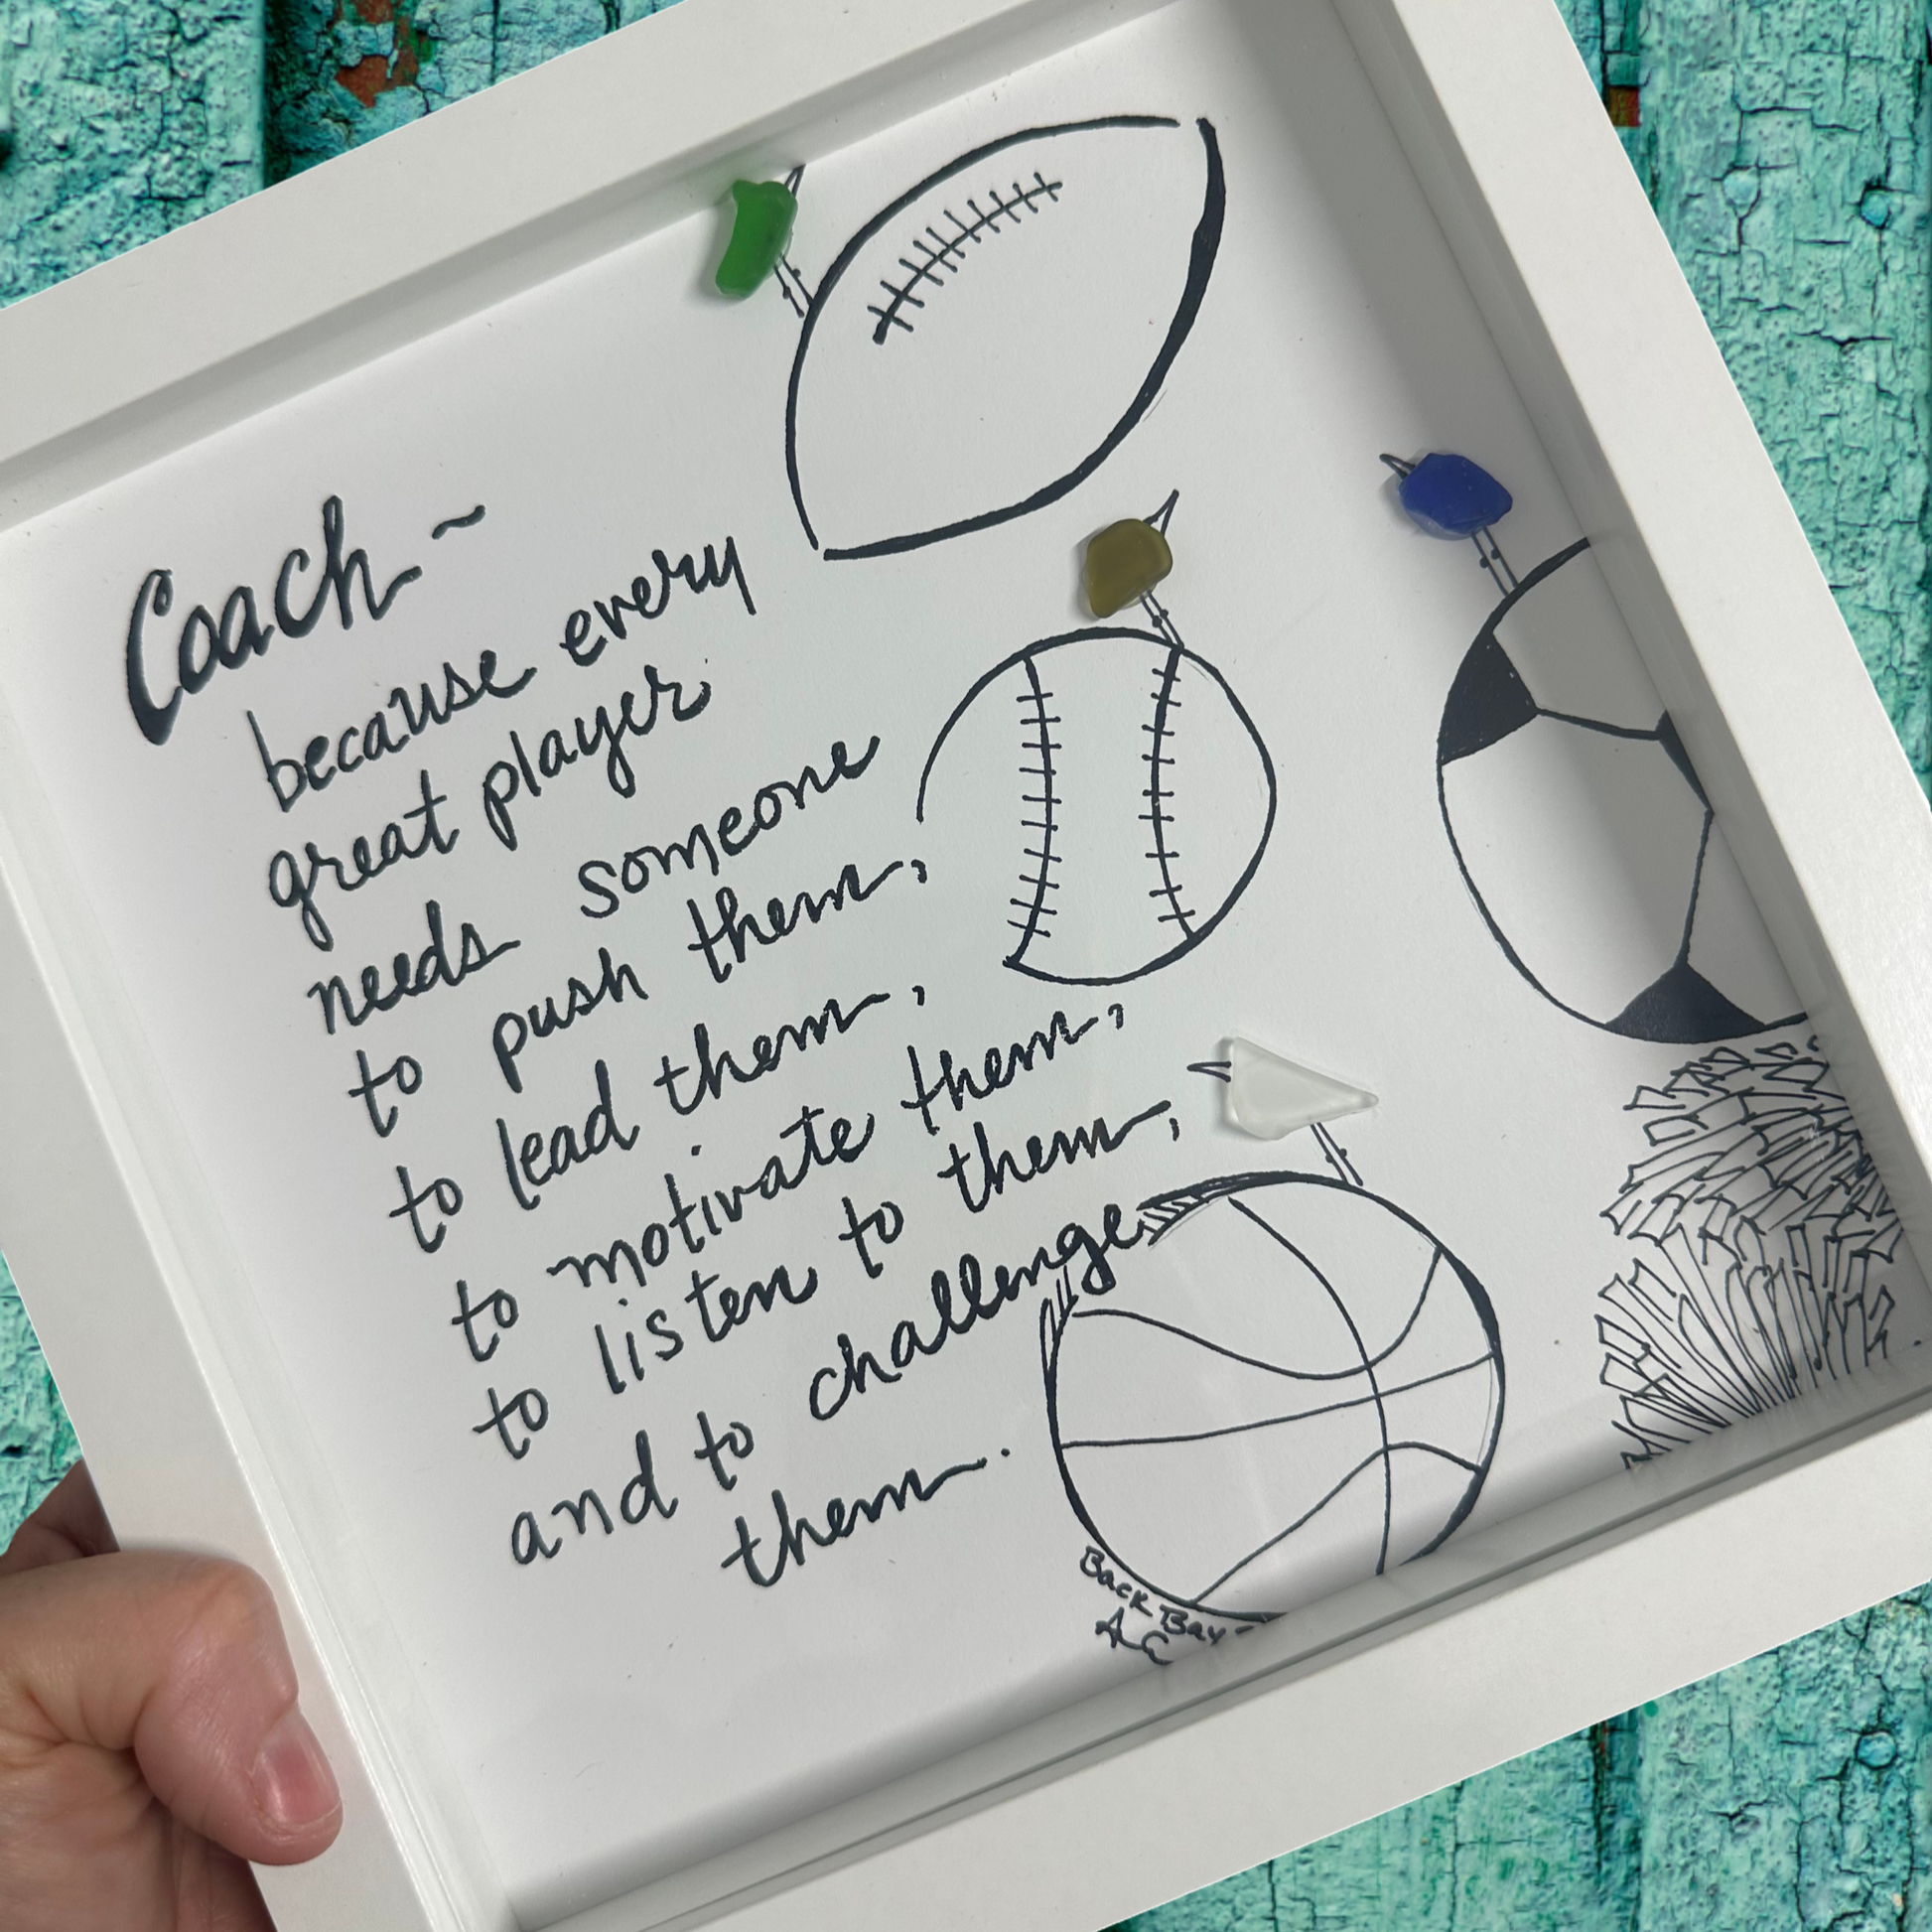 Coach ~
because every
great player
needs someone
to push them,
to lead them,
to motivate them,
to listen to them,
and to challenge
them.
Back Bay -